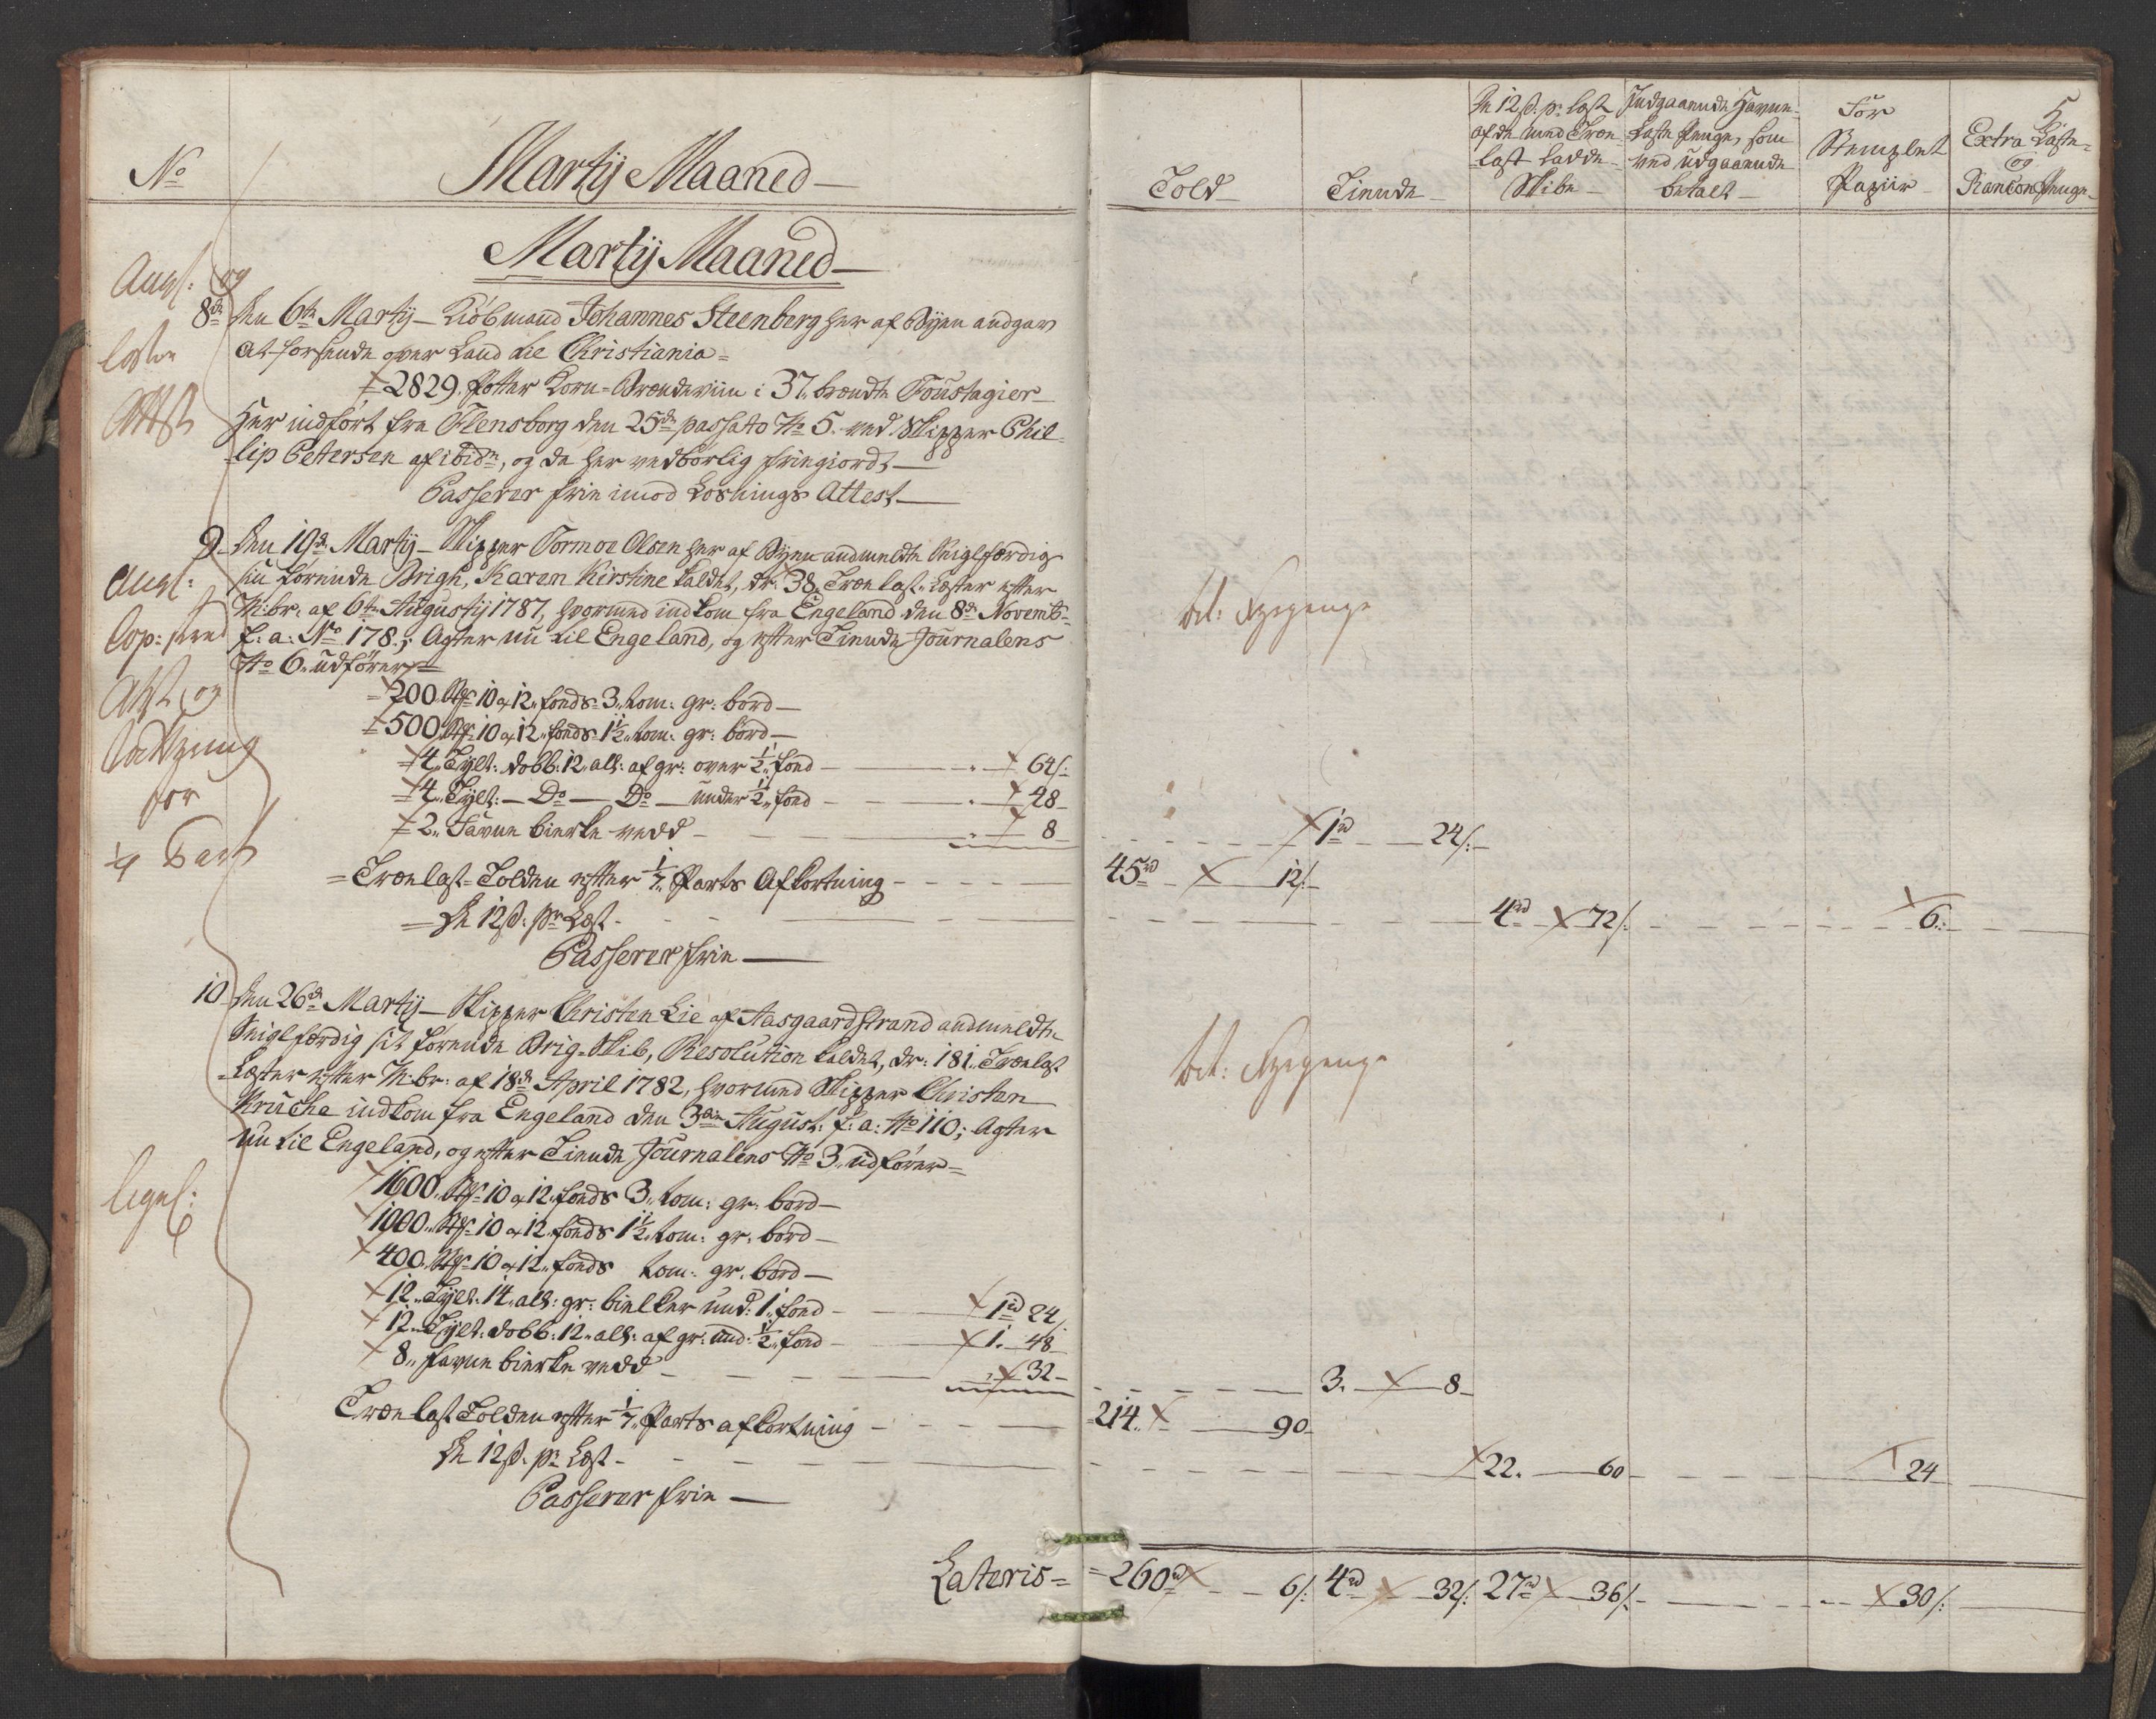 No
Martij Maaned
Martij Maaned
8de Den 6te Martij Kiöbmand Johannes Steenberg her af Byen andgav
at forsende over Land til Christiania
2829 Potter Korn-Brændeviin i 37 brændte Foustagier
Her indført fra Flensborg den 25de passato No 5 ved Skipper Phil-
lip Petersen af ibidn, og da her vedbørlig friegiordt
Passerer frie imod Losnings Attest
9 Den 19de Martij Skipper Tormoe Olsen her af Byen andmeldte Seiglfærdig
sin førende Brigh, Karen Kirstine kaldet, dr: 38 Trælast-Læster efter
M:br: af 6te Augustij 1787, hvormed indkom fra Engeland den 8de Novemb-
f: a: No 178; Agter nu til Engeland, og efter Tiende Journalens
No 6 udfører
200 10 a 12 fods 3 tom: gr: bord
500 10 a 12 fods 1½ tom: gr: bord
4 Tylt: dobb: 12 al: af gr: over ½ fod 64 s:
4 Tylt: Do Do under ½ fod 48
2 Favne birke vedd 8
Trælast-Tolden efter 1/7 Parts Afkortning
De 12 s: pr Læst
Passerer frie
10 Den 26de Martij Skipper Christen Lie af Aasgaardstrand andmeldte
Seiglfærdig sit førende Brig-Skib, Resolution kaldet, dr: 181 Trælast
Læster efter M:br: af 18de April 1782, hvormed Skipper Christen
Kruche indkom fra Engeland den 3die August: f: a: No 110; Agter
nu til Engeland, og efter Tiende Journalens No 3 udfører
1600 10 a 12 fods 3 tom: gr: bord
1000 10 a 12 fods 1½ tom: gr: bord
400 10 a 12 fods tom: gr: bord
12 Tylt: 14 al: gr: bielker und: 1 fod 1rd 24
12 Tylt: dobb: 12 al: af gr: und: ½ fod 1. 48
8 favne birke vedd 32
Trælast Tolden efter 1/7 Parts afkortning
De 12 s: pr Læst
Passerer frie
Lateris
og
Attst
for
Told
Tiende
De 12 s: pr Læst
af de med Træ-
last ladde
Skibe
Indgaaende Havne-
Laste Penge, som
ved udgaaende
betalt
For
Stemplet
Papiir
5.
Extra Laste-
og
Rancon Penge
1rd 24 s:
45rd 12 s
4rd 72 s: 6:
3. 8
214 90
22. 60 24
260rd 6 s: 4rd 32 s: 27rd 36 s: 30 s: